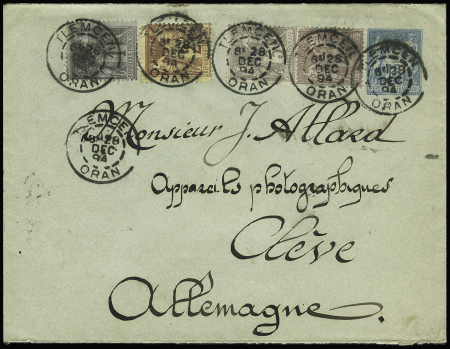 TLEMCEN
8E 28
DEC
94
ORAN
TLEMCEN
DEC
94
ORAN
TLEMCEN
8E 28
DEC
94
ORAN
TLEMCEN
28
DEC
94
ORAN
TLEMCEN
28
DEC
94
ORAN
TLEMCEN
28
DEC
94
ORAN
Monsieur J. Allard
Appareils photographiques
Clève
Allemagne.